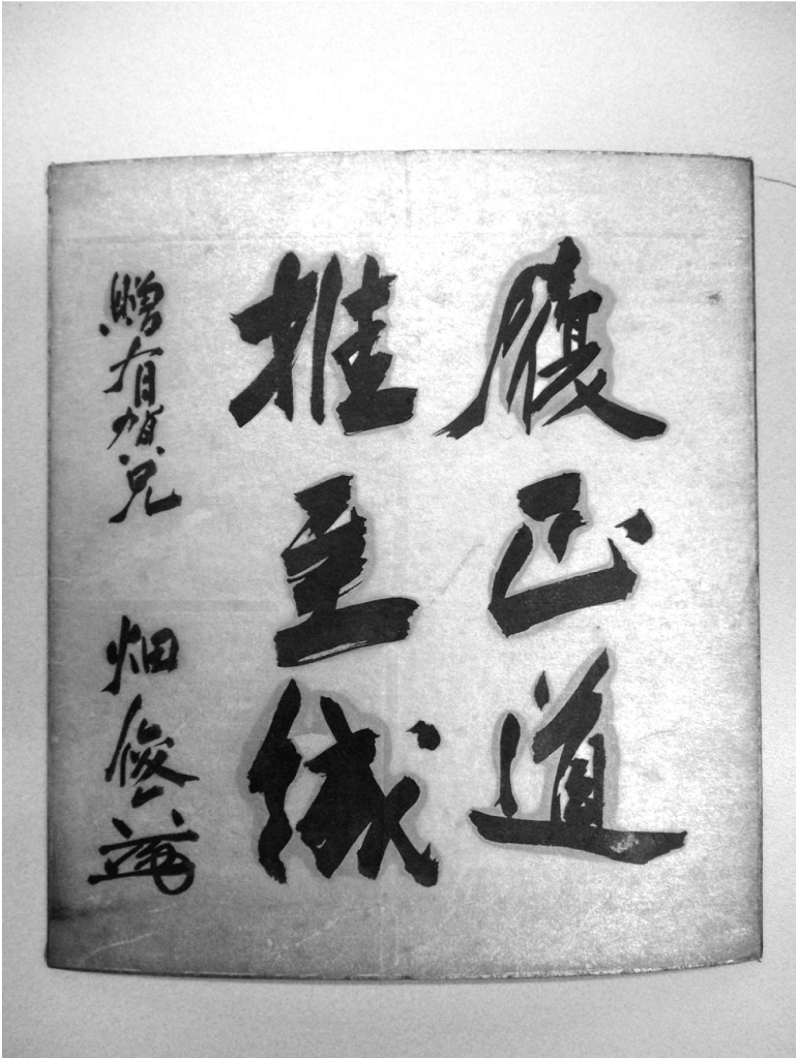 履正道
推至誠
贈有賀兄
畑俊六